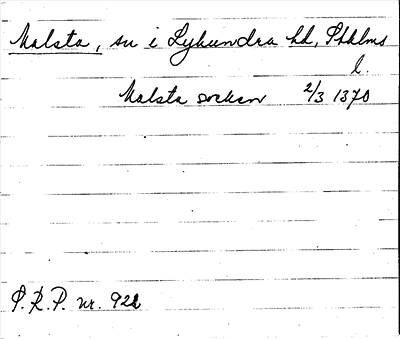 Malsta, sn i Lyhundra hd, Sthlms
l.
Malsta socken 2/3 1370
P.R.P. nr. 922